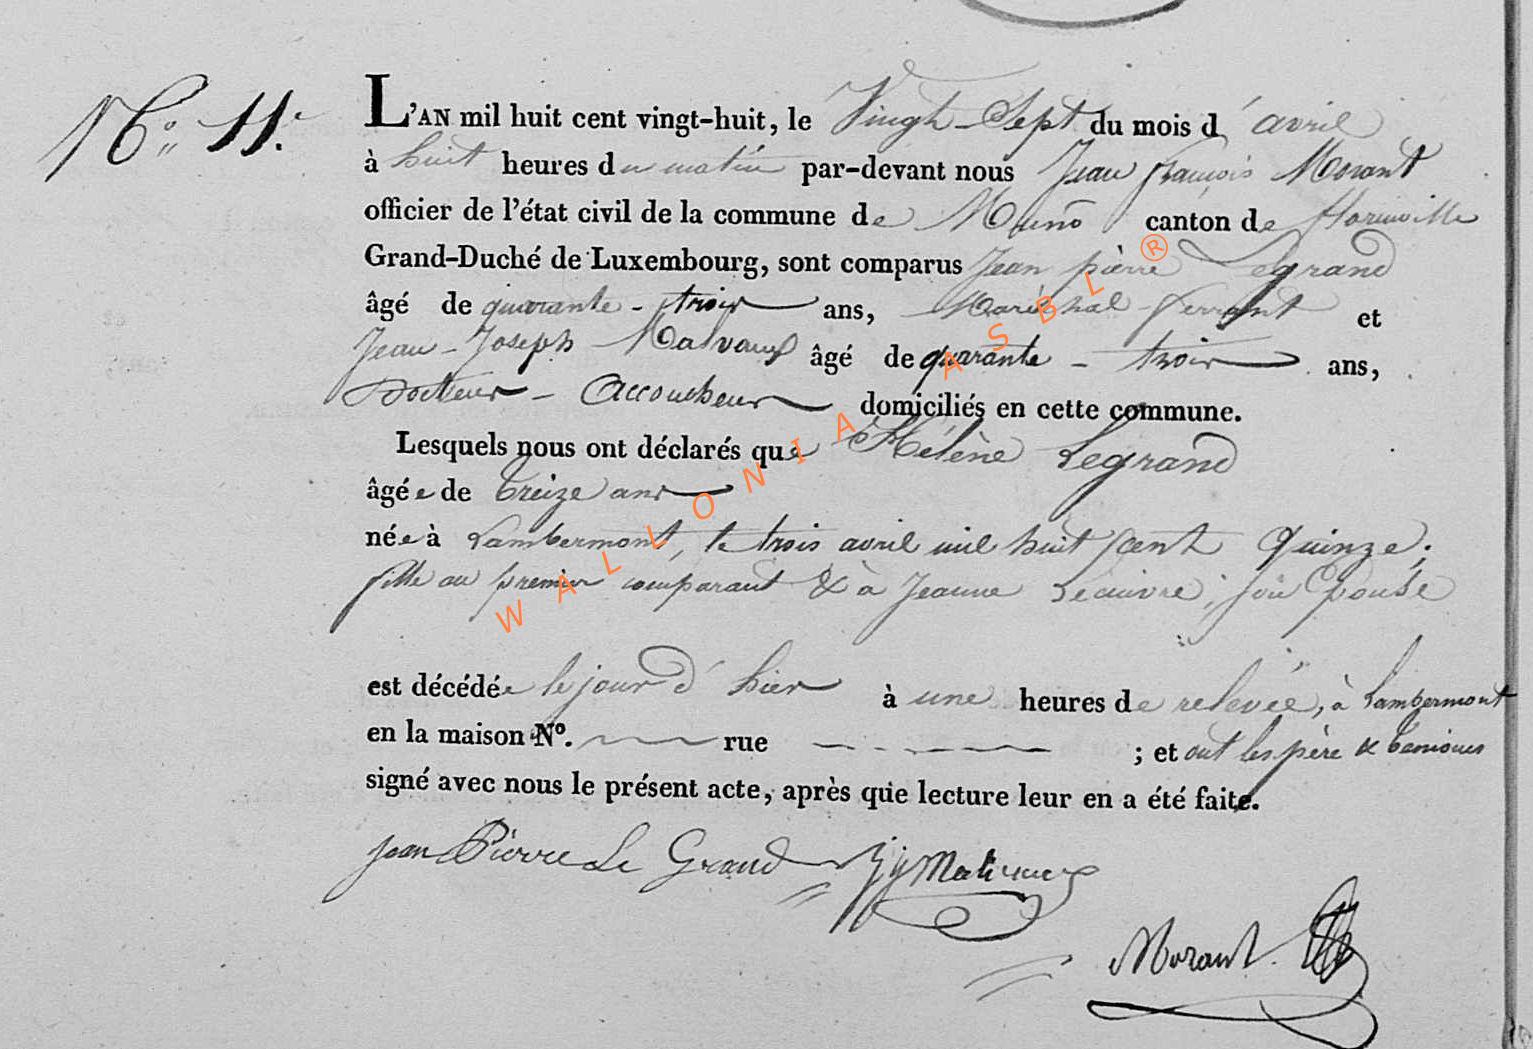 N.º 11.
L'AN mil huit cent vingt-huit, le Vingt-Sept du mois d'avril
à huit heures du matin par-devant nous Jean françois Morant
officier de l'état civil de la commune de Muno canton de florenville
Grand-Duché de Luxembourg, sont comparus Jean pierre Legrand
âgé de quarante-trois ans, Maréchal-ferrant et
Jean-Joseph-Malvaux âgé de quarante-trois ans,
Docteur-Accoucheur domiciliés en cette commune.
Lesquels nous ont déclarés que Hélène Legrand
âgée de treize ans
née à Lambermont, le trois avril mil huit cent quinze;
fille au premier comparant & à Jeanne , son Epouse
est décédée le jour d'hier à une heures de relevée, à Lambermont
en la maison Nº. rue ; et ont les père & temoins
signé avec nous le présent acte, après que lecture leur en a été faite.
Jean Pierre Le Grand JJ Malvaux
Morant
WALLONIA ASBL ®